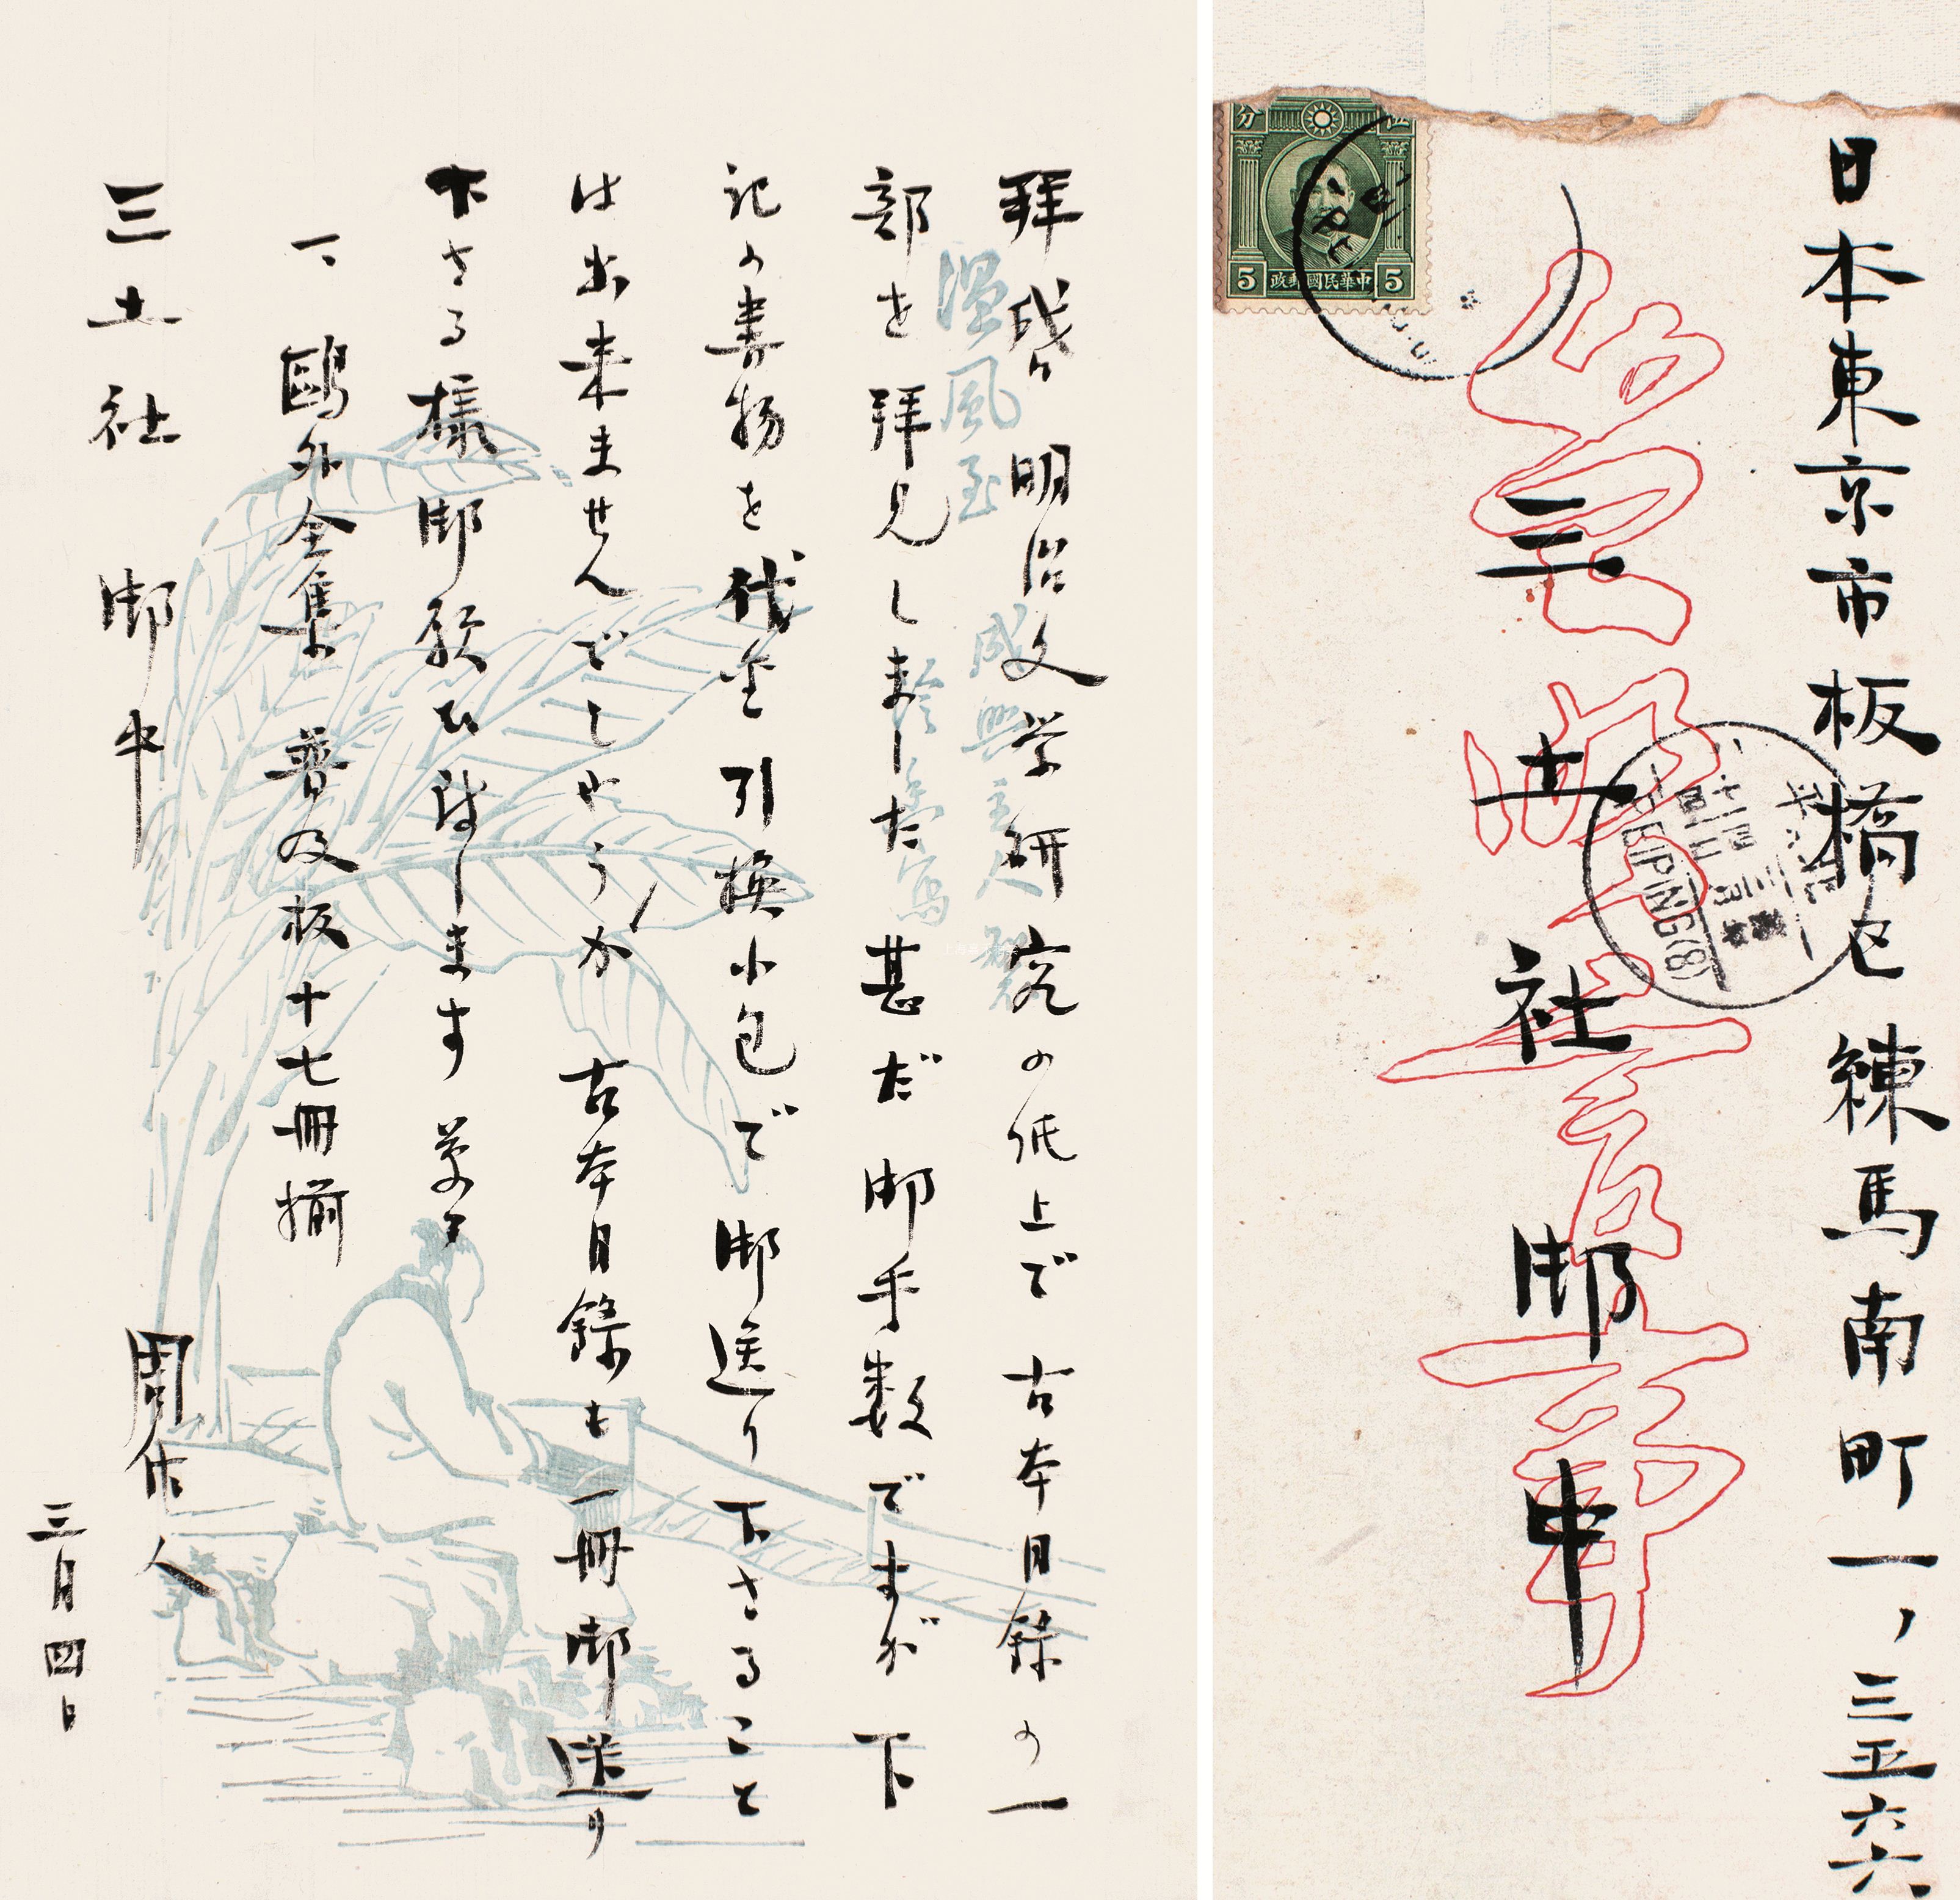 拝啓 明治文学研究の紙上で古本目録の一
部を拝見しました 甚だ御手数ですが下
記の書物を代金引換小包で御送り下さること
は出来ませんでしやうか 古本目録も一冊御送り
下さる様御願ひ致します 草々
一、鷗外全集 普及板十七冊揃
三土社 御中
周作人
三月四日
温風至
日本東京市板橋区練馬南町一ノ三五六六
三土社 御中
5 中華民國郵政 5
PEIPING(8)